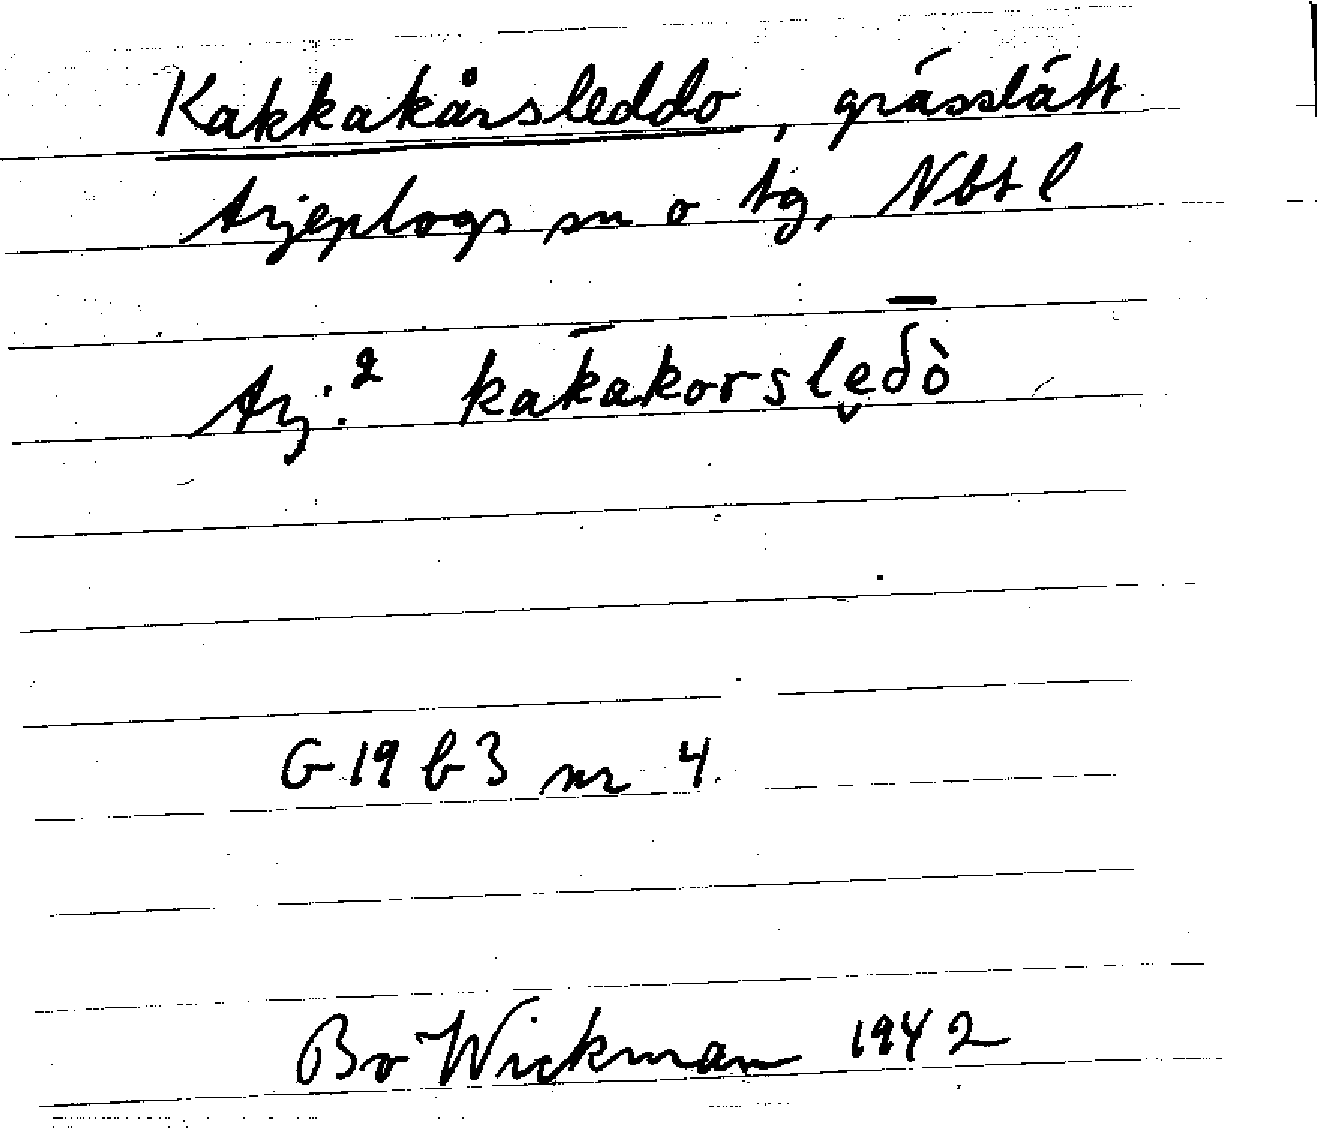 Kakkakårsleddo, grässlått
Arjeplogs sn o tg, Nbt l
Arj.² kak̄akorslę̌δ̄ò
G 19 b 3 nr 4
Bo Wickman 1942